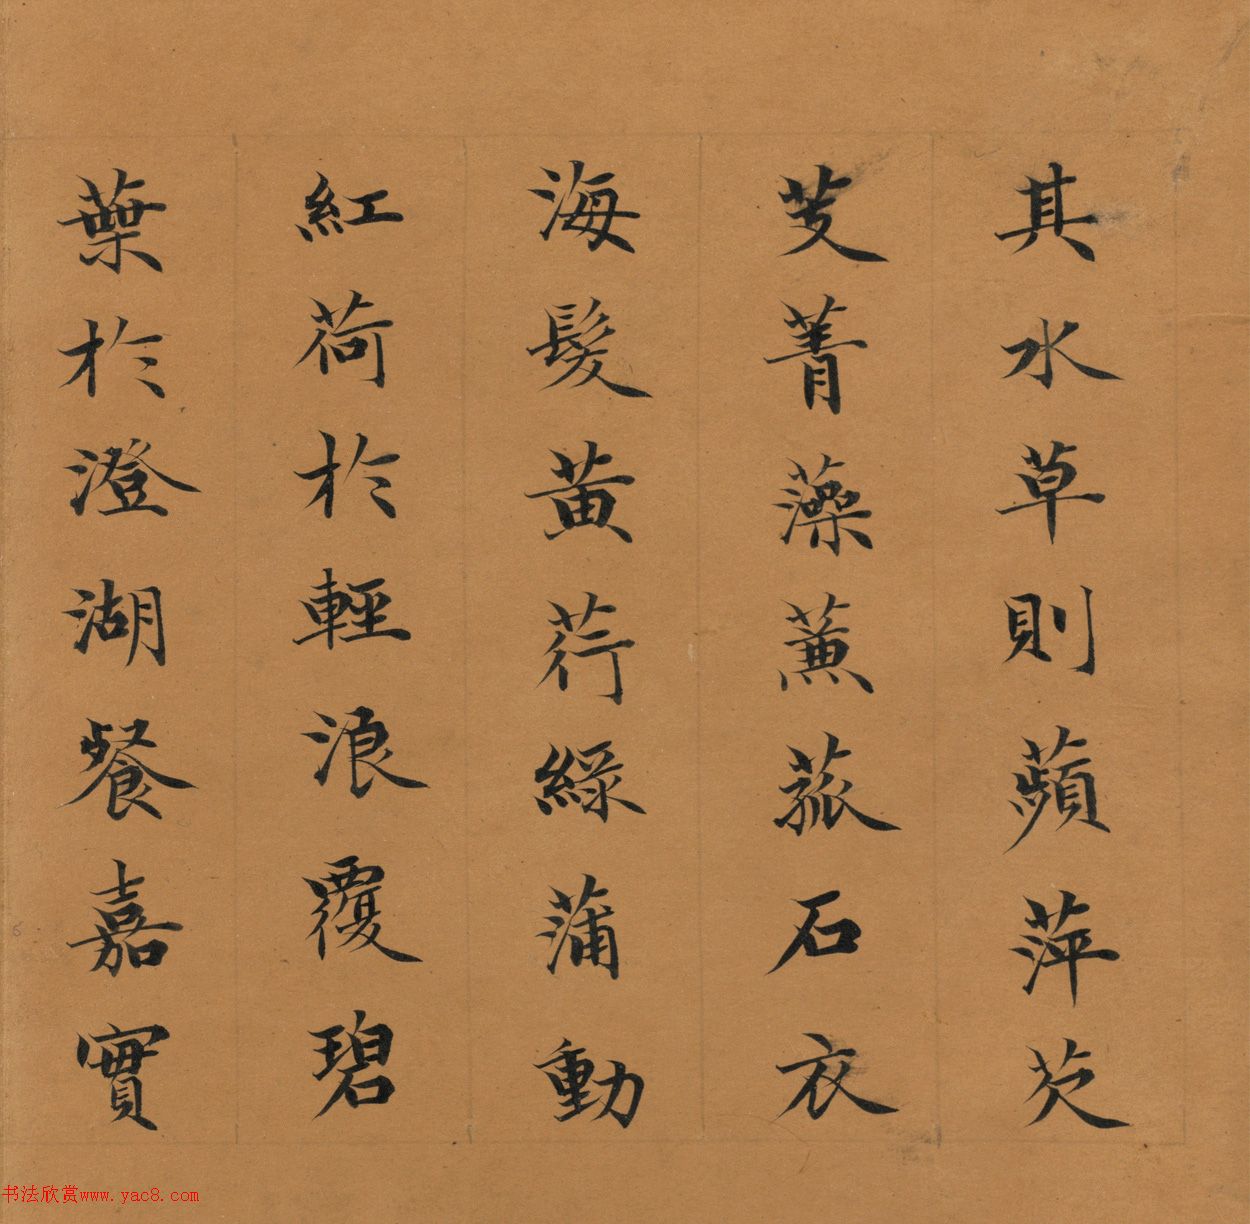 其水草則蘋萍芡
芰菁藻蒹菰石衣
海髮黃荇綠蒲動
紅荷於輕浪覆碧
葉於澄湖餐嘉實
书法欣赏www.yac8.com